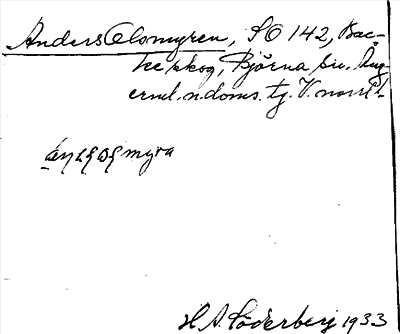 Anders Olsmyren, SO 142, Bac-
ke skog, Björna sn. Ång-
erml. n. doms. tj. V. norrl.
myra
H. A. Söderberg 1933